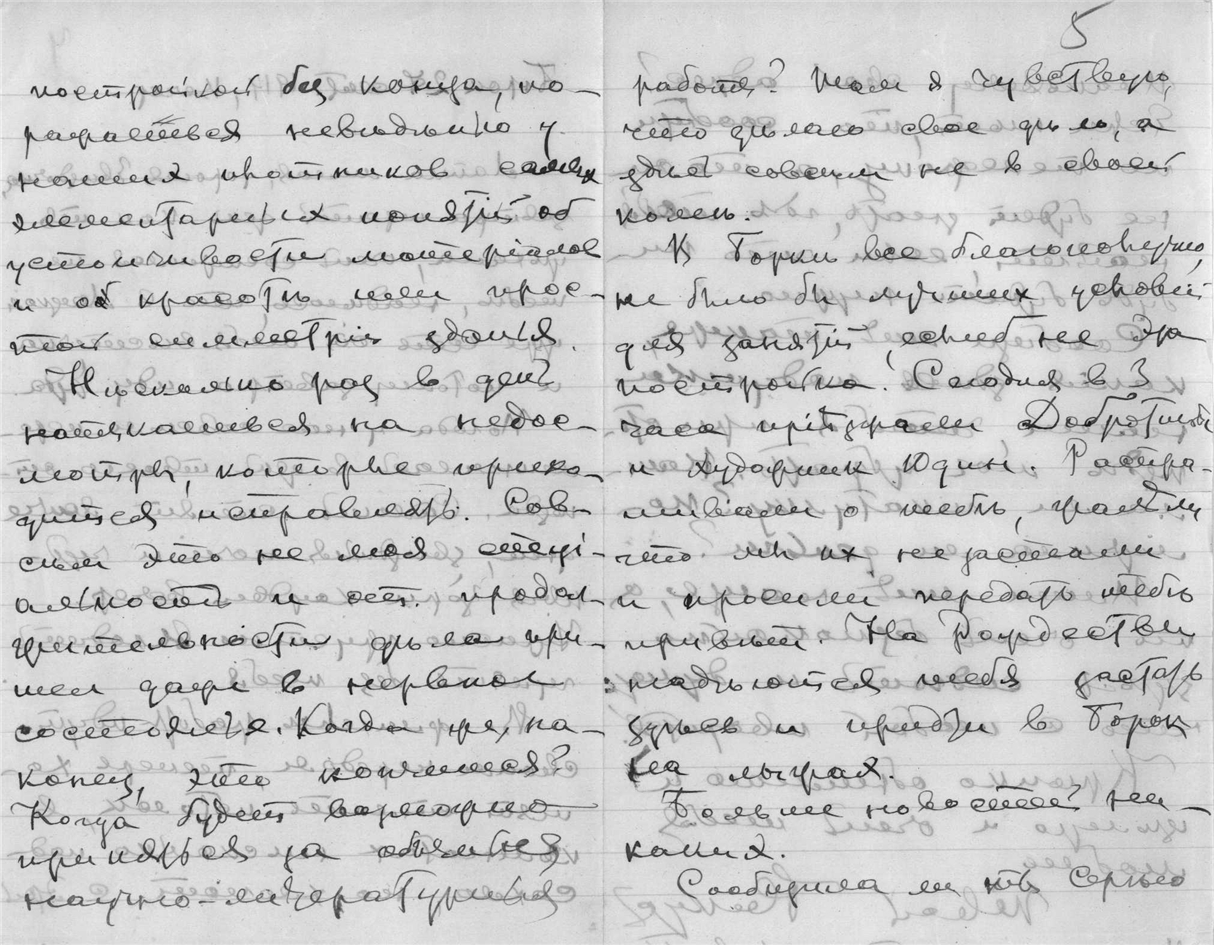 постройкой без конца, по-
ражаешься невидимо у
наших плотников самых
элементарных понятій об
устойчивости матеріалов
и об красотѣ или прос-
той симметріи зданія.
Нѣсколько раз в день
натыкаешься на недос-
мотры, которые прихо-
дится исправлять. Сов-
сѣм это не моя спеці-
альность и от продол-
жительности дѣла при-
шел даже в нервное
состояніе. Когда же, на-
конец, это кончится?
Когда будет возможно
приняться за обычныя
научно-литературныя
5
работы? Там я чувствую,
что дѣлаю свое дѣло, а
здѣсь совсѣм не в своей
кожѣ.
В Борки все благополучно,
не было бы лучших условій
для занятій, если б не эта
постройка! Сегодня в 3
часа пріѣзжали
и художник Юдин. Распра-
шивали о тебѣ, жалѣли
что мы их не застали
и просили передать тебѣ
привѣт. На Рождествѣ
надѣются тебя застать
здѣсь и придти в Борок
на лыжах.
Больше новостей ни-
каких.
Сообщила ли ты Сергѣю